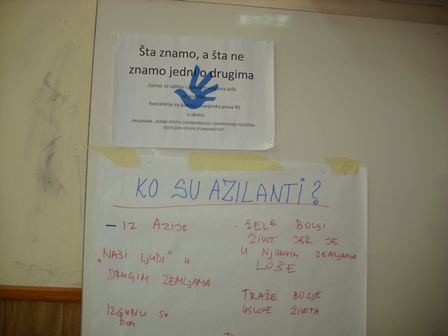 Šta znamo, a šta ne
znamo jedni o drugima
Centar za zaštitu i azila
Kancelarija za prava RS
u okviru
PROGRAMA „BORBA PROTIV DISKRIMINACIJE I UNAPREĐENJE POLOŽAJA
OSETLJIVIH GRUPA STANOVNIŠTVA“
KO SU AZILANTI?
– IZ AZIJE
„NAŠI LJUDI“ U
DRUGIM ZEMLJAMA
IZGUBILI SU
DOM
- ŽELE BOLJI
ŽIVOT JER JE
U NJIHOVIM ZEMLJAMA
LOŠE
TRAŽE BOLJE
USLOVE ŽIVOTA